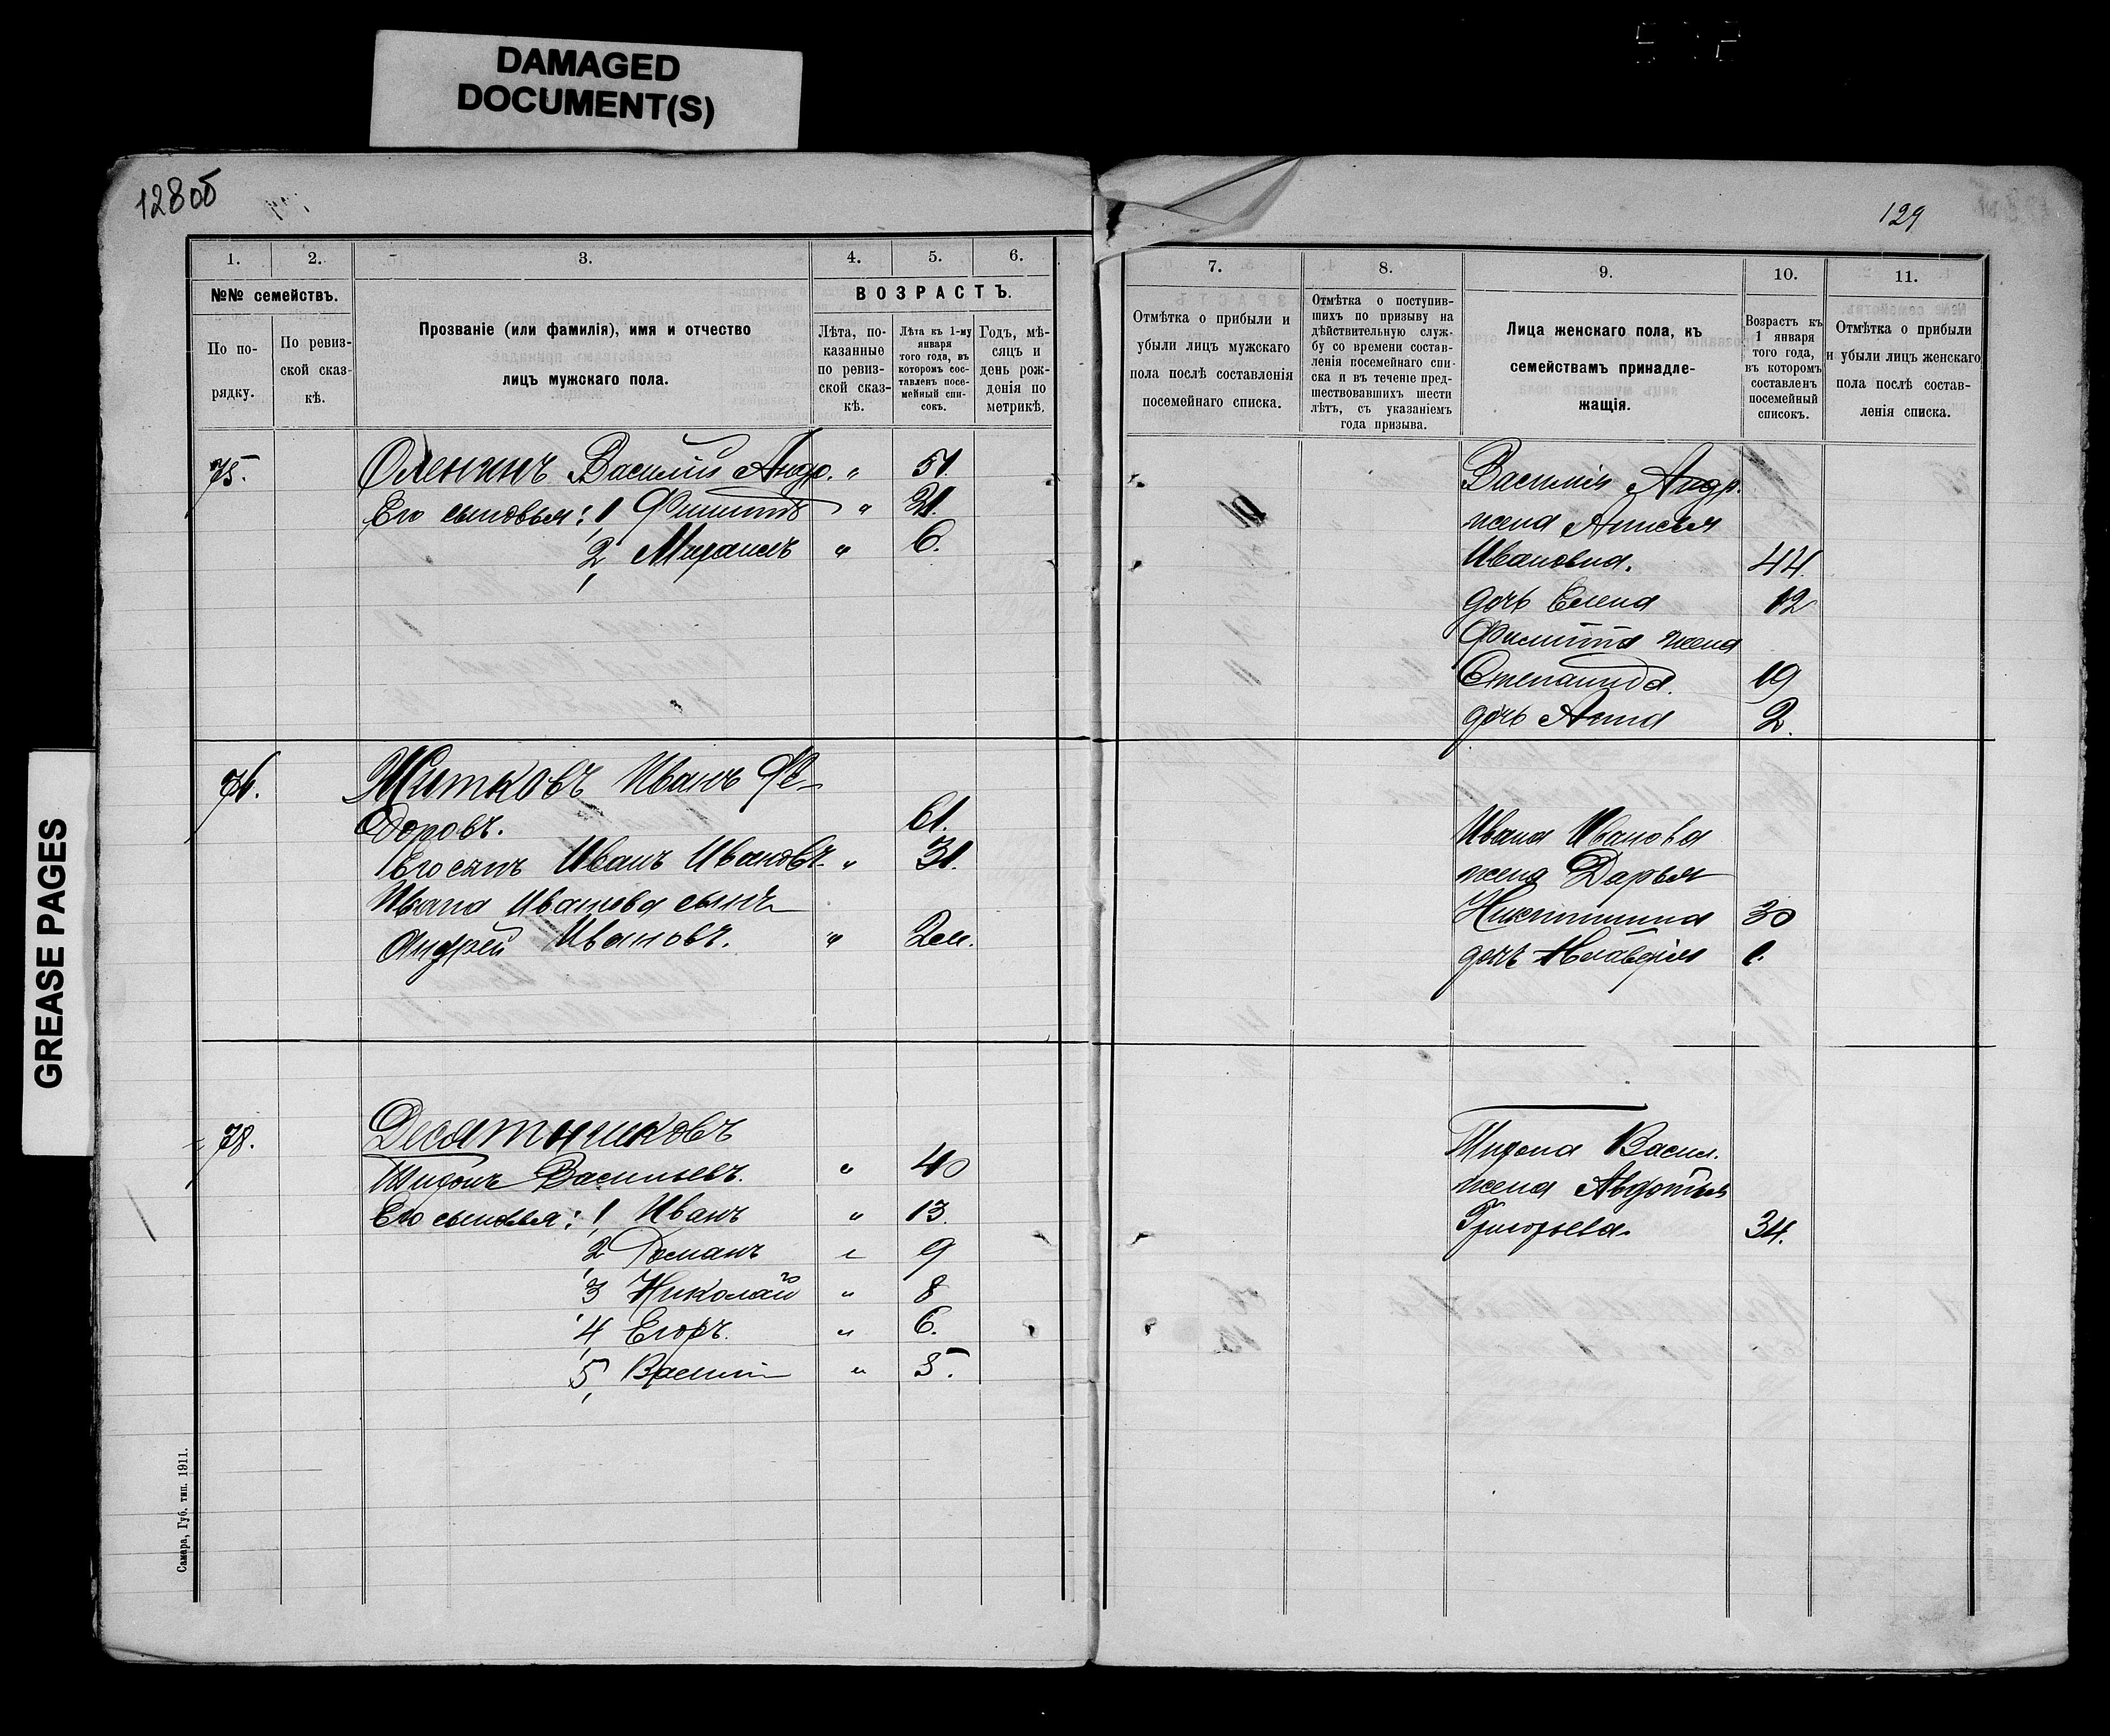 DAMAGED
DOCUMENT(S)
GREASE PAGES
128об
129
1. 2. 3. 4. 5. 6.
№№ семействъ.
По по-
рядку.
По ревиз-
ской сказ-
кѣ.
Прозваніе (или фамилія), имя и отчество
лицъ мужскаго пола.
ВОЗРАСТЪ.
Лѣта, по-
казанные
по ревиз-
ской сказ-
кѣ.
Лѣта къ 1-му
января
того года, въ
которомъ сос-
тавленъ посе-
мейный спи-
сокъ.
Годъ, мѣ-
сяцъ и
день рож-
денія по
метрикѣ.
75. Оленинъ Василій Андр. „ 51.
Его сыновья: 1 Филиппъ „ 21.
2, Михаилъ „ 6.
76. Житковъ Иванъ Фе-
доровъ. 61.
Его сынъ Иванъ Ивановъ. „ 31.
Ивана Иванова сынъ
Андрей Ивановъ. „ 2 м.
78. Десятниковъ
Тихонъ Васильевъ. „ 40
Его сыновья: 1, Иванъ „ 13.
2, Романъ „ 9
3 Николай „ 8
4, Егоръ. „ 6.
5, Василій „ 5.
Самара, Губ. тип. 1911.
7. 8. 9. 10. 11.
Отмѣтка о прибыли и
убыли лицъ мужскаго
пола послѣ составленія
посемейнаго списка.
Отмѣтка о поступив-
шихъ по призыву на
дѣйствительную служ-
бу со времени состав-
ленія посемейнаго спи-
ска и въ теченіе пред-
шествовавшихъ шести
лѣтъ, съ указаніемъ
года призыва.
Лица женскаго пола, къ
семействамъ принадле-
жащія.
Возрастъ къ
1 января
того года,
въ которомъ
составленъ
посемейный
списокъ.
Отмѣтка о прибыли
и убыли лицъ женскаго
пола послѣ состав-
ленія списка.
Василія Андр.
жена Анисья
Ивановна. 44.
дочь Елена 12
Филиппа жена
Степанида. 19
дочь Анна 2.
Ивана Иванова
жена Дарья
Никитина 30
дочь Клавдія 1.
Тихона Васил.
жена Авдотья
Григорьева. 34.